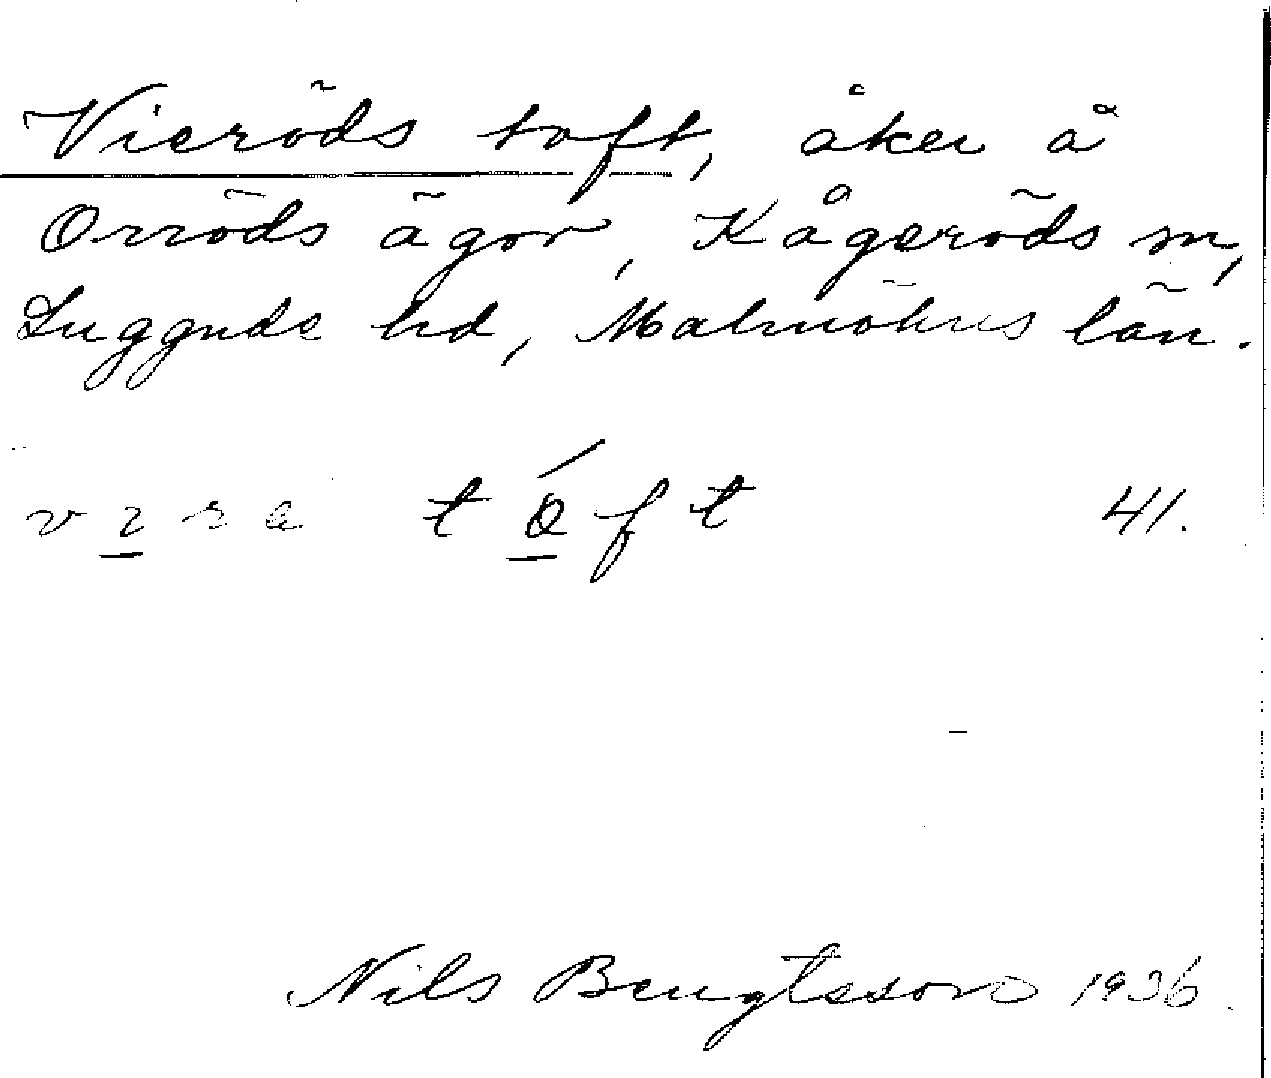 Vieröds toft, åker å
Orröds ägor, Kågeröds sn,
Luggude hd, Malmöhus län.
vɩra tǫ́ft 41.
Nils Bengtsson 1936.